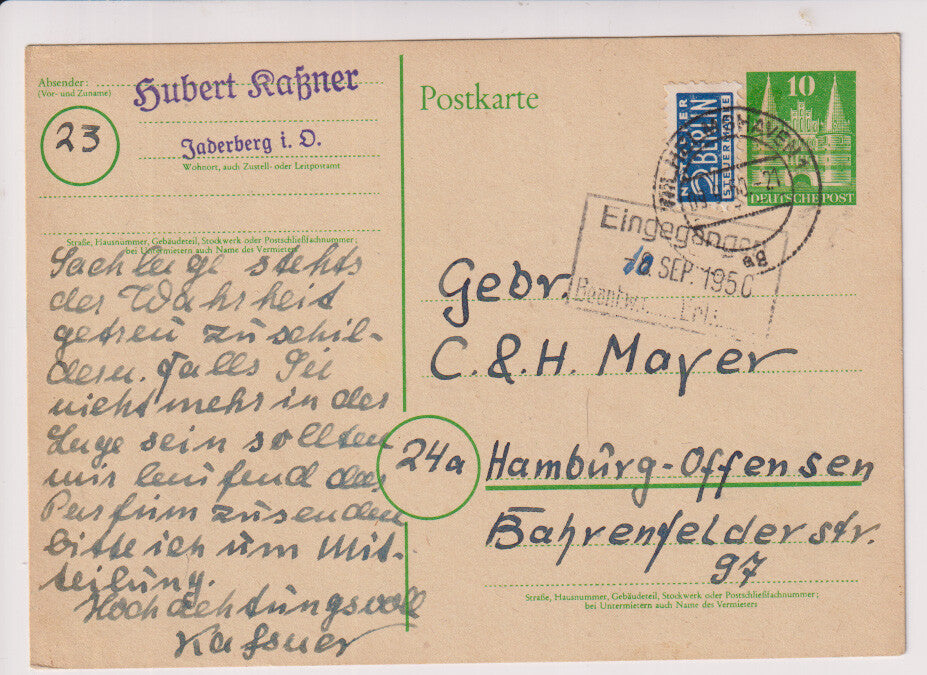 Absender:
(Vor- und Zuname)
Hubert Kaßner
23
Jaderberg i. O.
Wohnort, auch Zustell- oder Leitpostamt
Straße, Hausnummer, Gebäudeteil, Stockwerk oder Postschließfachnummer;
bei Untermietern auch Name des Vermieters
Sachlage stehts
der Wahrheit
getreu zu schil-
dern. Falls Sie
nicht mehr in der
Lage sein sollten
mir laufend das
Parfüm zusenden
bitte ich um Mit-
teilung.
Hochachtungsvoll
Kaßner
Postkarte
NOTOPFER
2 BERLIN
STEUERMARKE
10
DEUTSCHE POST
WILHELMSHAVEN
-21
Eingegangen
10 SEP. 1950
Gebr.
C. & H. Mayer
24a
Hamburg-Offensen
Bahrenfelder str.
97
Straße, Hausnummer, Gebäudeteil, Stockwerk oder Postschließfachnummer;
bei Untermietern auch Name des Vermieters